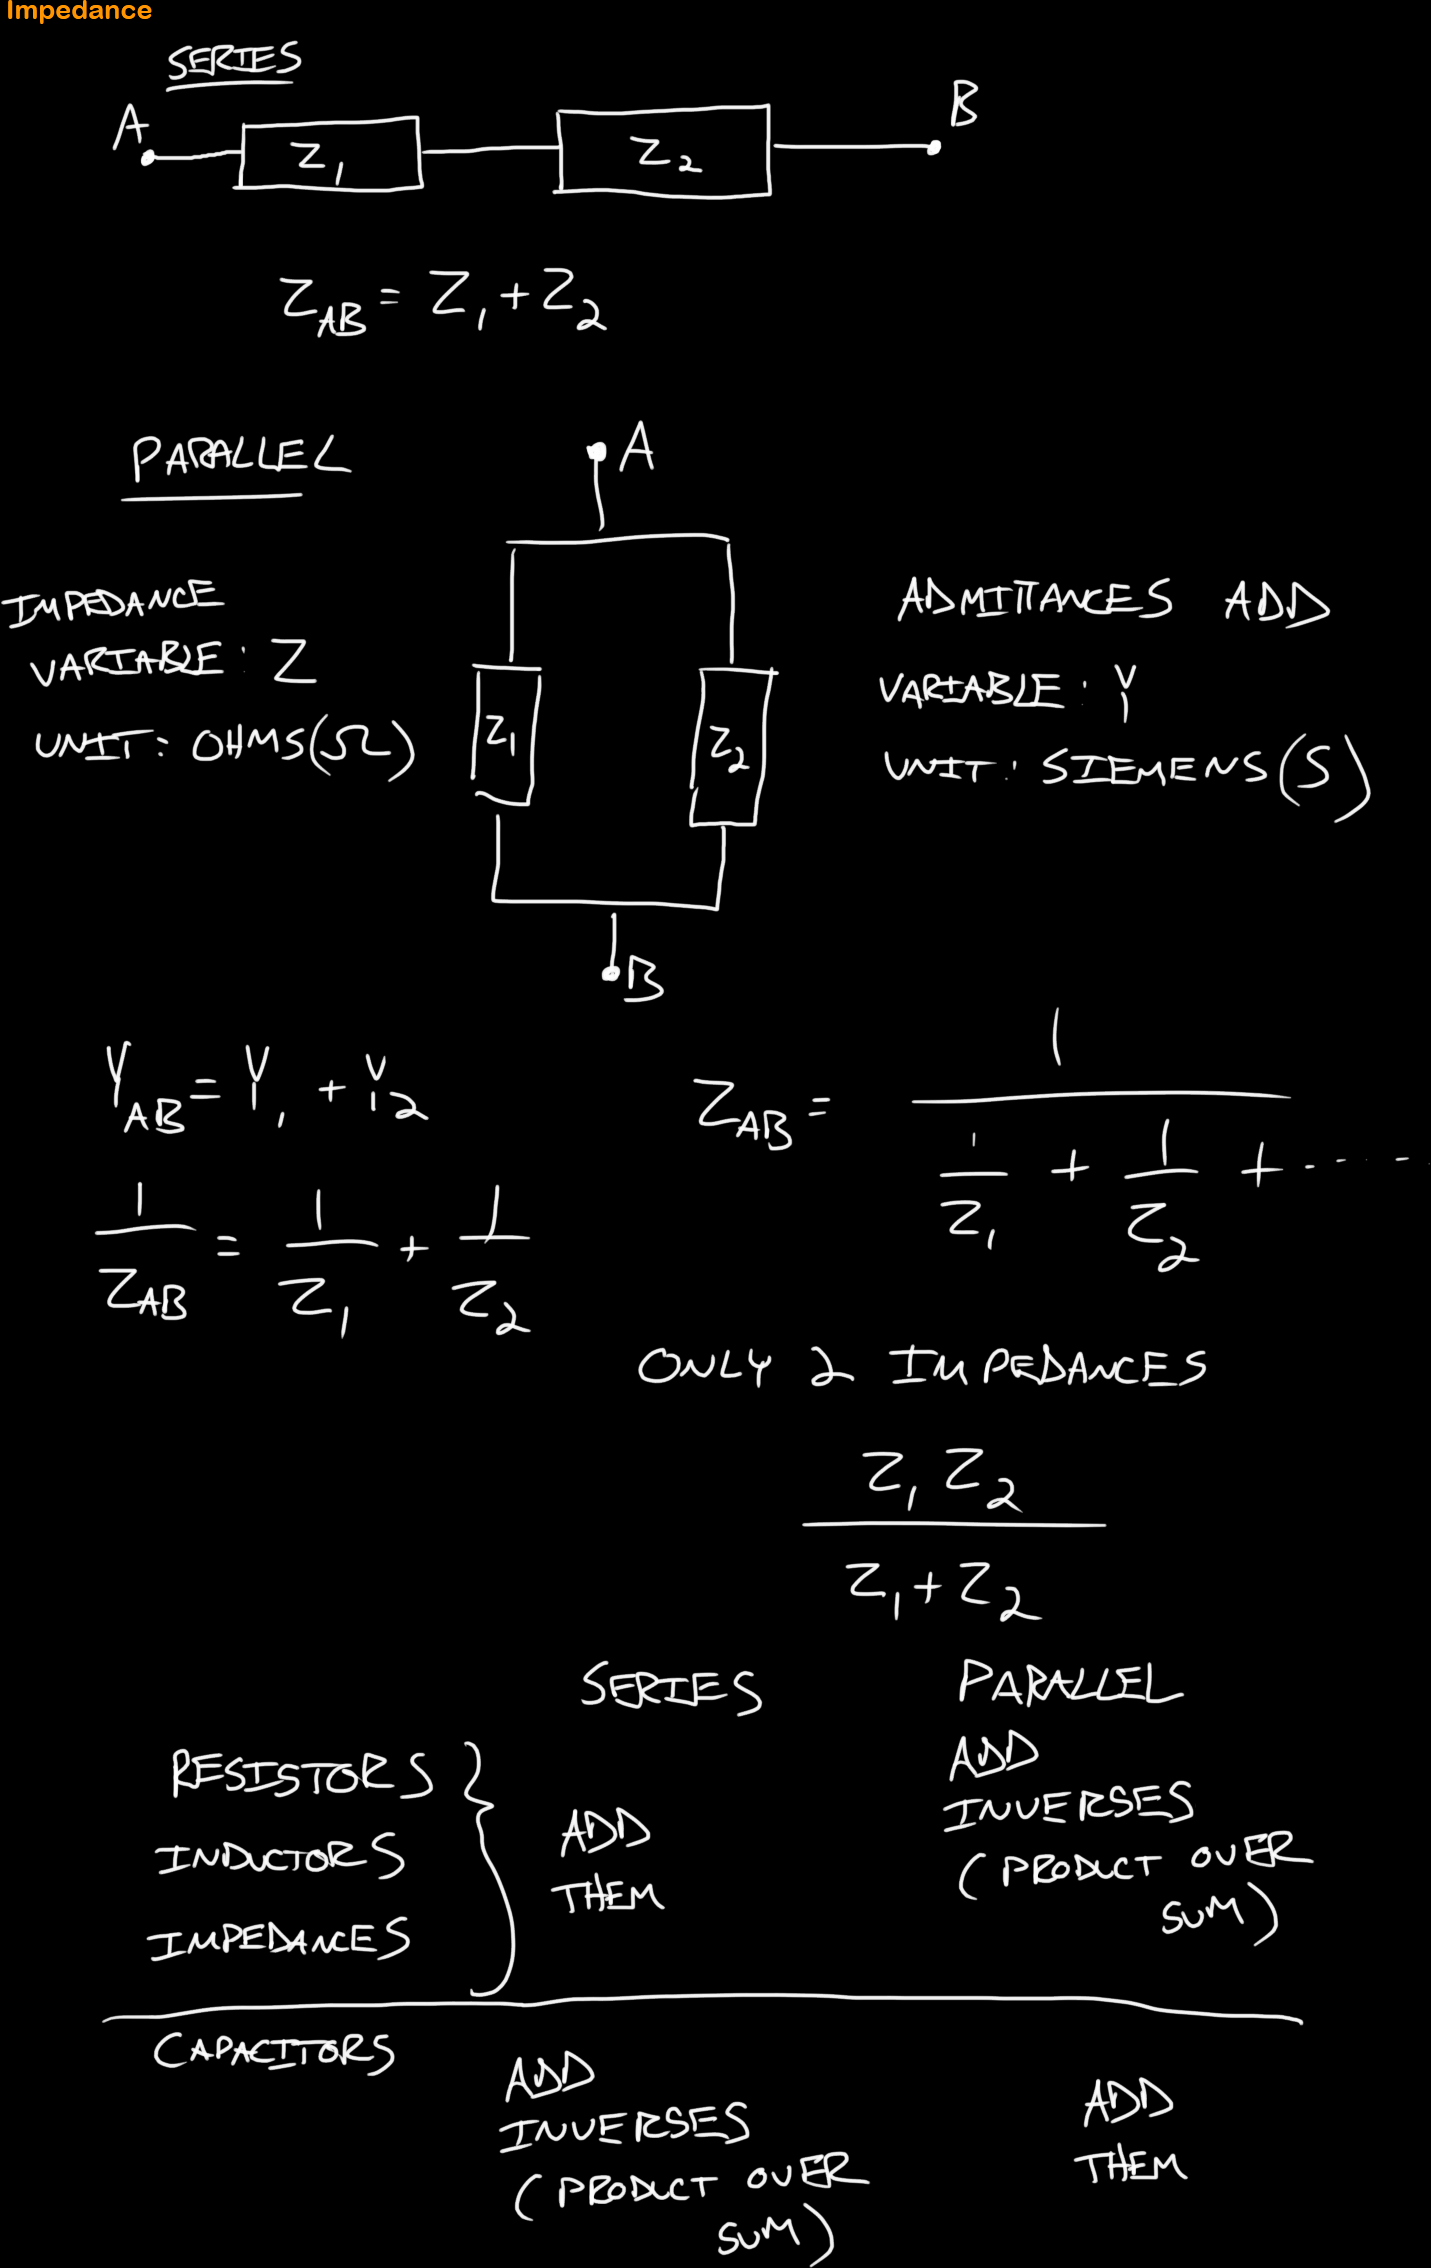 Impedance
SERIES
A
Z₁
Z₂
B
Z_AB = Z₁ + Z₂
PARALLEL
A
IMPEDANCE
VARIABLE: Z
UNIT: OHMS(Ω)
Z₁
Z₂
ADMITTANCES ADD
VARIABLE: Y
UNIT: SIEMENS(S)
B
Y_AB = Y₁ + Y₂
1/Z_AB = 1/Z₁ + 1/Z₂
Z_AB = 1/(1/Z₁ + 1/Z₂ + ·····)
ONLY 2 IMPEDANCES
Z₁Z₂
Z₁+Z₂
SERIES
PARALLEL
RESISTORS
INDUCTORS
IMPEDANCES
ADD
THEM
ADD
INVERSES
(PRODUCT OVER
SUM)
CAPACITORS
ADD
INVERSES
(PRODUCT OVER
SUM)
ADD
THEM